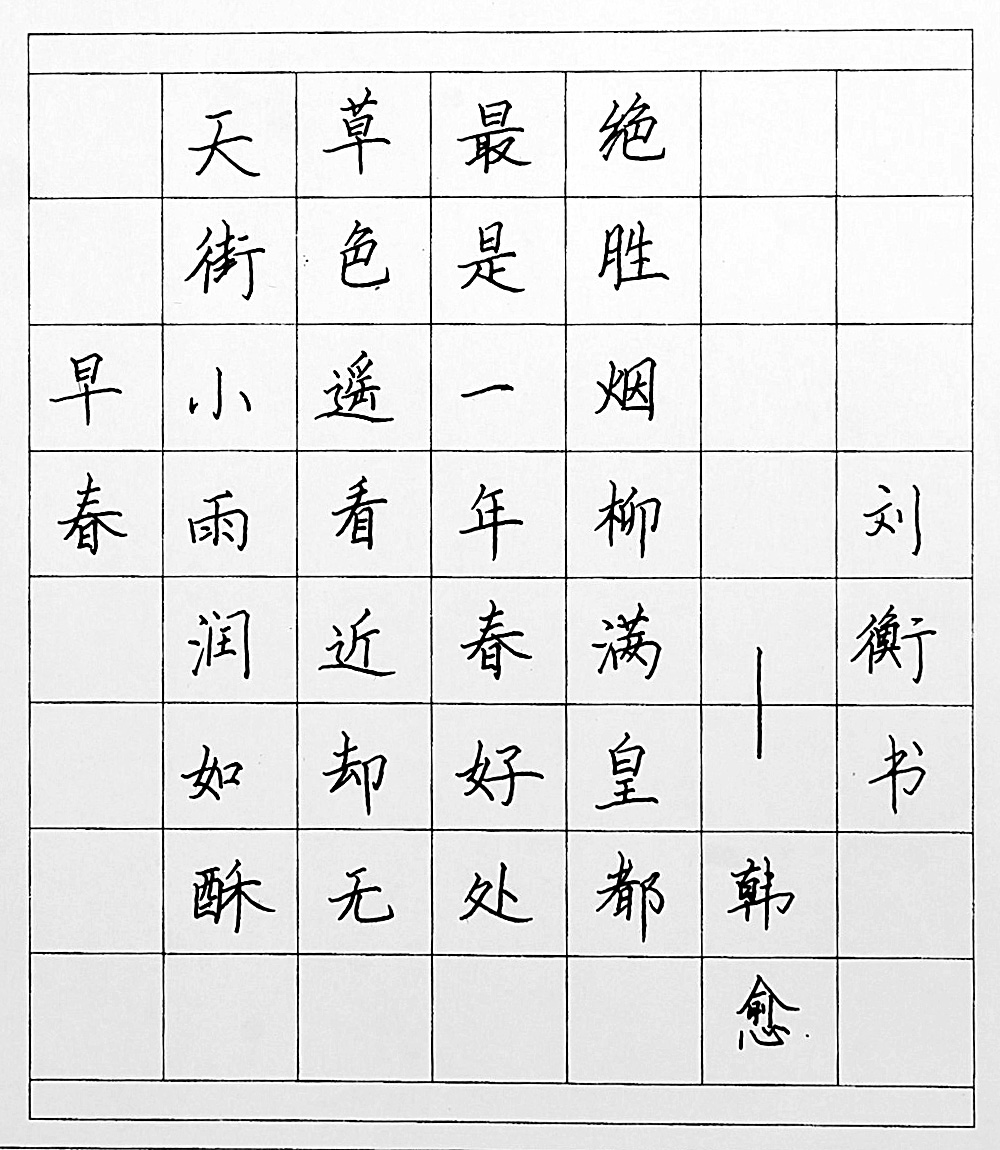 早春
天街小雨润如酥
草色遥看近却无
最是一年春好处
绝胜烟柳满皇都
—韩愈
刘衡书